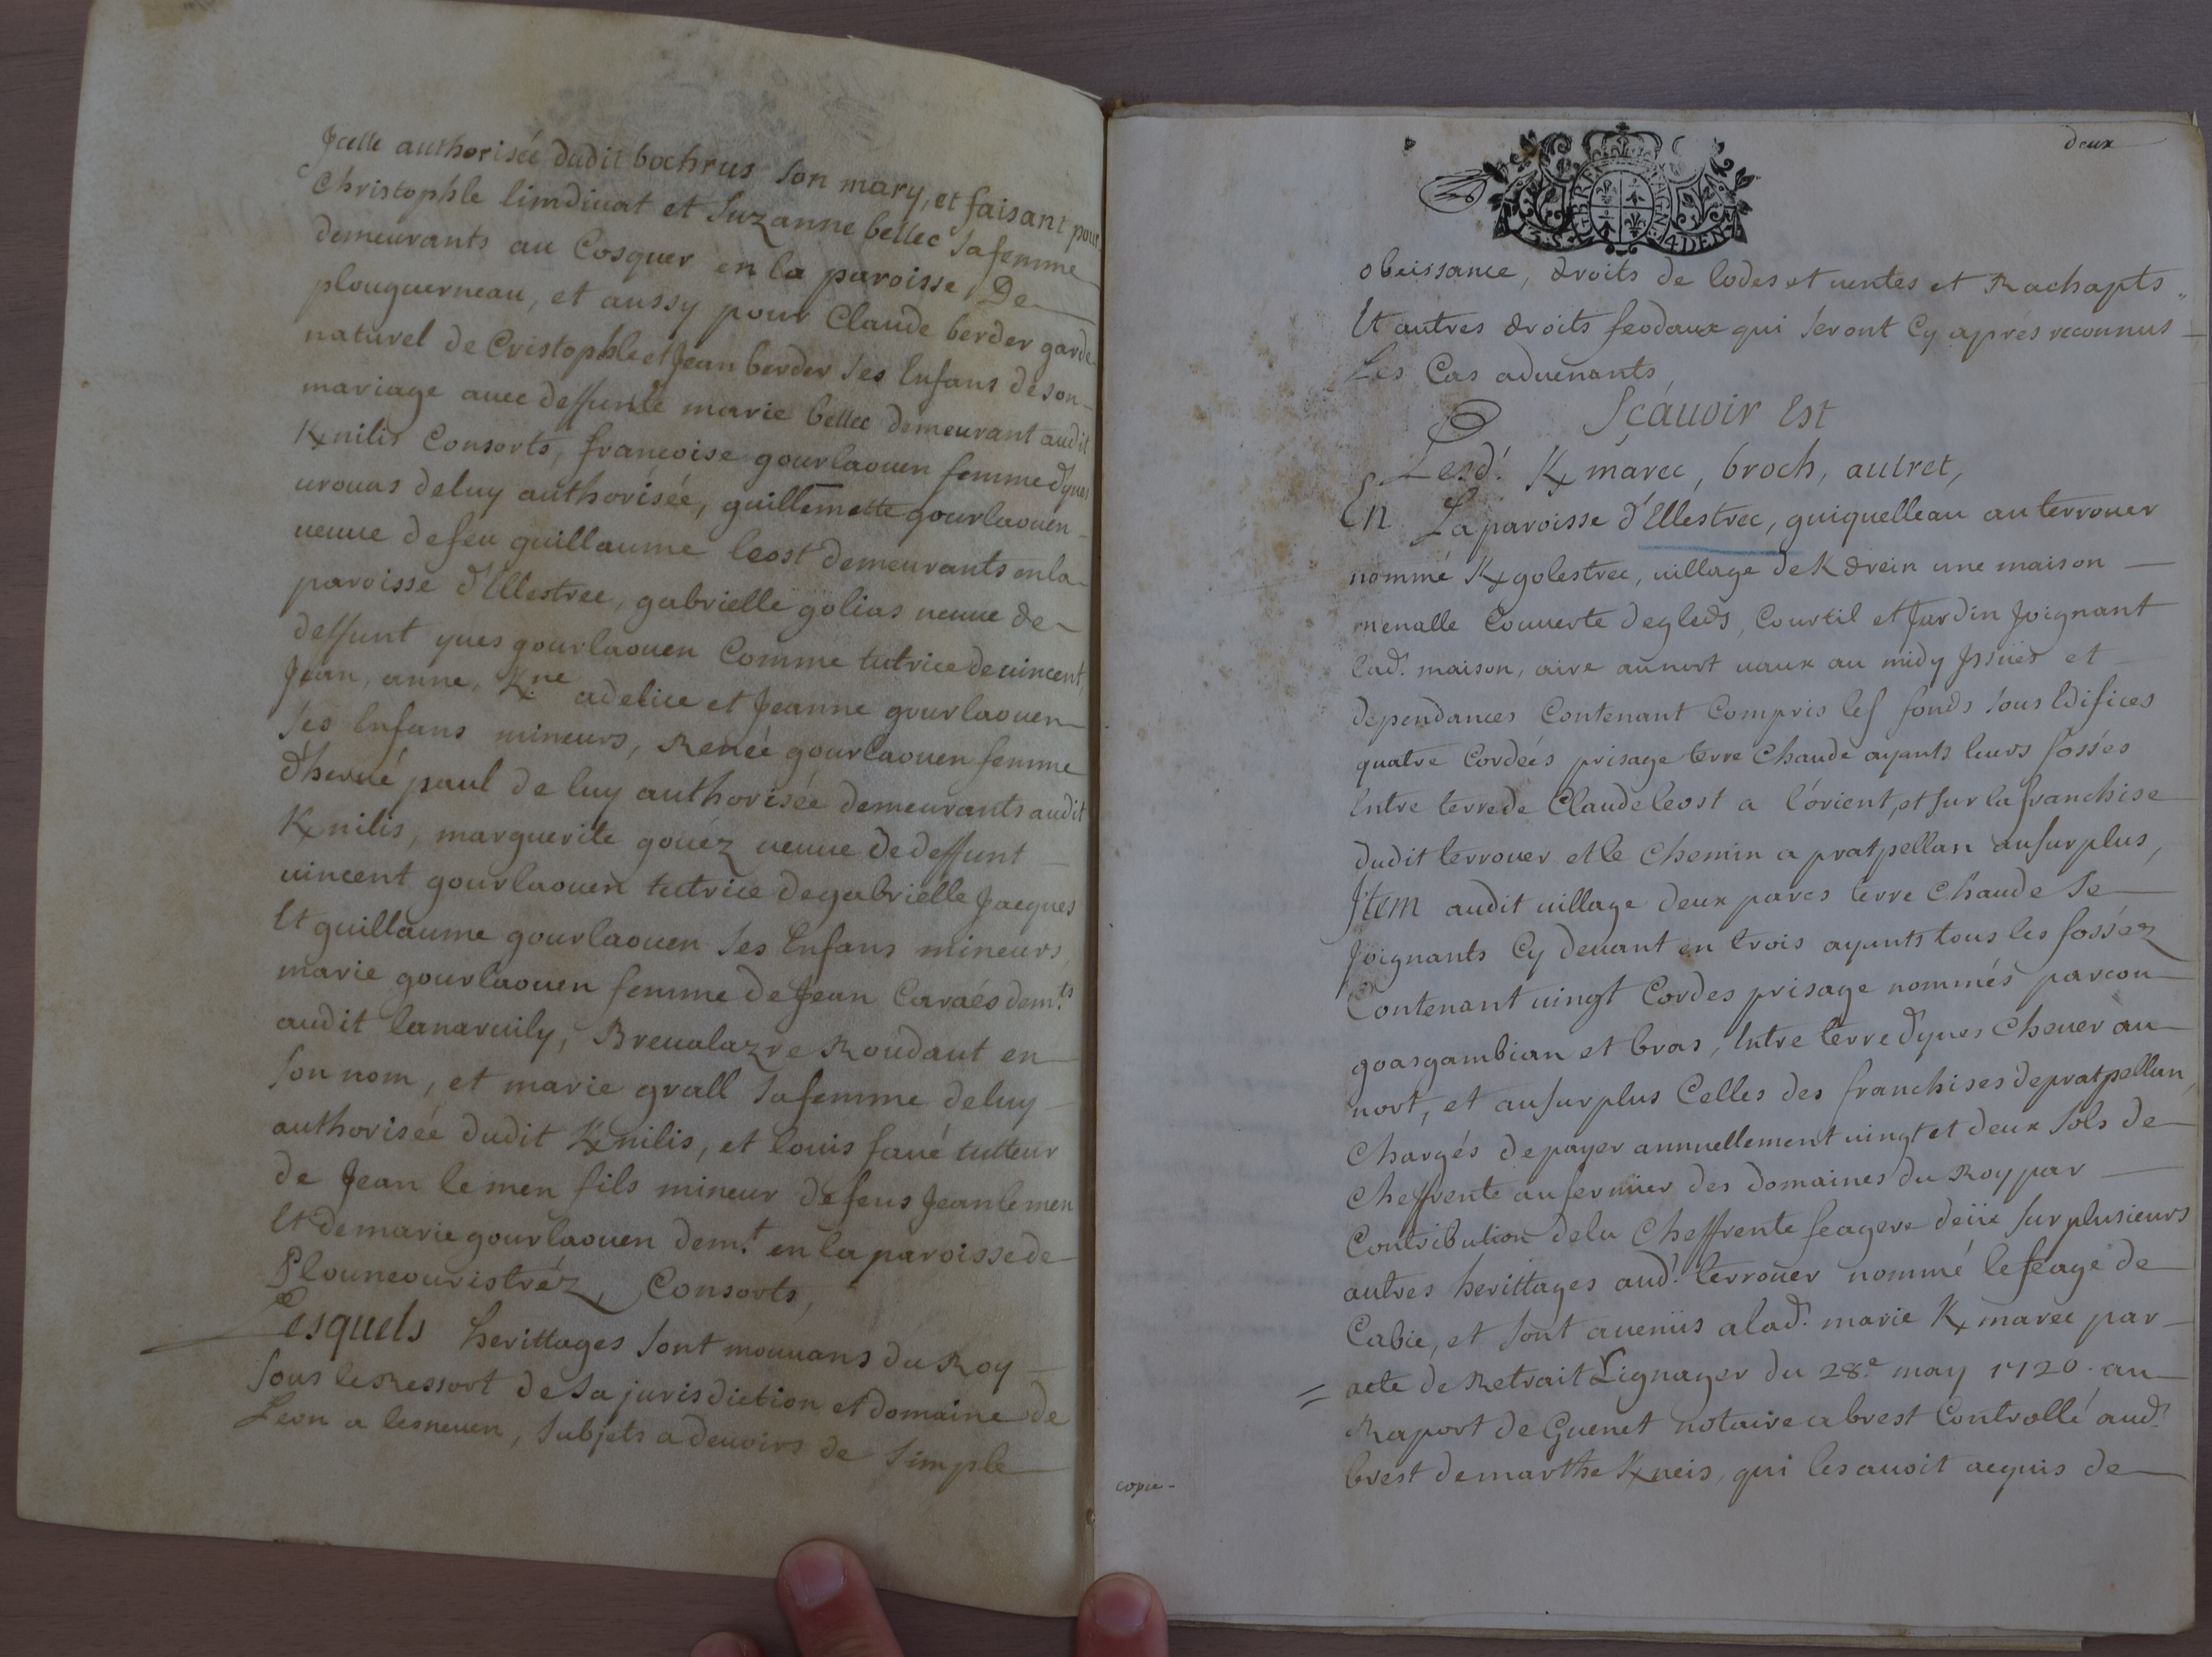 Jcelle authorisée dudit bochrus son mary, et faisant pour
Christophle limdiuat et Suzanne bellec sa femme
demeurants au Cosquer en la paroisse, De
plouguerneau, et aussy pour Claude berder garde
naturel de Cristophle et Jean berder ses Enfans de son
mariage auec deffunte marie bellec demeurant audit
Knilis Consorts, francoise gourlaouen femme d'yues
urouas deluy authorisée, guillemette gourlaouen
ueuue defeu guillaume leost demeurants en la
paroisse d'Ellestrec, gabrielle golias ueuue de
deffunt yues gourlaouen Comme tutrice de uincent,
Jean, anne, K.ne adelice et Jeanne gourlaouen
ses Enfans mineurs, Renée gourlaouen femme
d'herué paul de luy authorisée demeurants audit
Knilis, marguerite gouéz ueuue de deffunt
uincent gourlaouen tutrice de gabrielle Jacques
Et guillaume gourlaouen ses Enfans mineurs,
marie gourlaouen femme de Jean Caraés dem.ts
audit lanaruily, Breualazre Roudaut en
son nom, et marie grall sa femme deluy
authorisée dudit Knilis, et louis faué tutteur
de Jean le men fils mineur defeus Jean le men
Et de marie gourlaouen dem.t en la paroisse de
Plouneouristréz, Consorts,
Lesquels herittages sont mouuans du Roy
sous le Ressort de sa jurisdiction et domaine de
Leon a lesneuen, subjets a deuoirs de simple
deux
BRETAGNE
13.S. 4DEN.
obeissance, droits de lodes et uentes et Rachapts
Et autres droits feodaux qui seront Cy aprés reconnus
Les Cas aduenants,
Sçauoir Est
Lesd. K marec, broch, autret,
En La paroisse d'Ellestrec, guiquelleau au terrouer
nommé K golestrec, uillage de K drein une maison
menalle Couuerte de gleds, Courtil et Jardin Joignant
lad. maison, aire au nort uaux au midy Jssües et
dependances Contenant Compris les fonds sous Edifices
quatre Cordées prisage terre chaude ayants leurs fossés
Entre terre de Claude leost a l'orient, et sur la franchise
dudit terrouer et le chemin a pratpellan au surplus,
Jtem audit uillage deux parcs terre chaude se
Joignants Cy deuant en trois ayants tous les fosséz
Contenant uingt Cordes prisage nommés parcou
goasgambian et bras, Entre terre d'yues Cheuer au
nort, et au surplus Celles des franchises de pratpellan,
Chargés de payer annuellement uingt et deux sols de
cheffrente au fermier des domaines du Roy par
Contribution de la Cheffrente feagere deüe sur plusieurs
autres herittages aud. terroüer nommé le feage de
Cabie, et sont auenüs a lad. marie K marec par
acte de Retrait Lignager du 28.e may 1720. au
Raport de Guenet notaire a brest Controllé aud.
brest de marthe K neis, qui les auoit acquis de
copie-